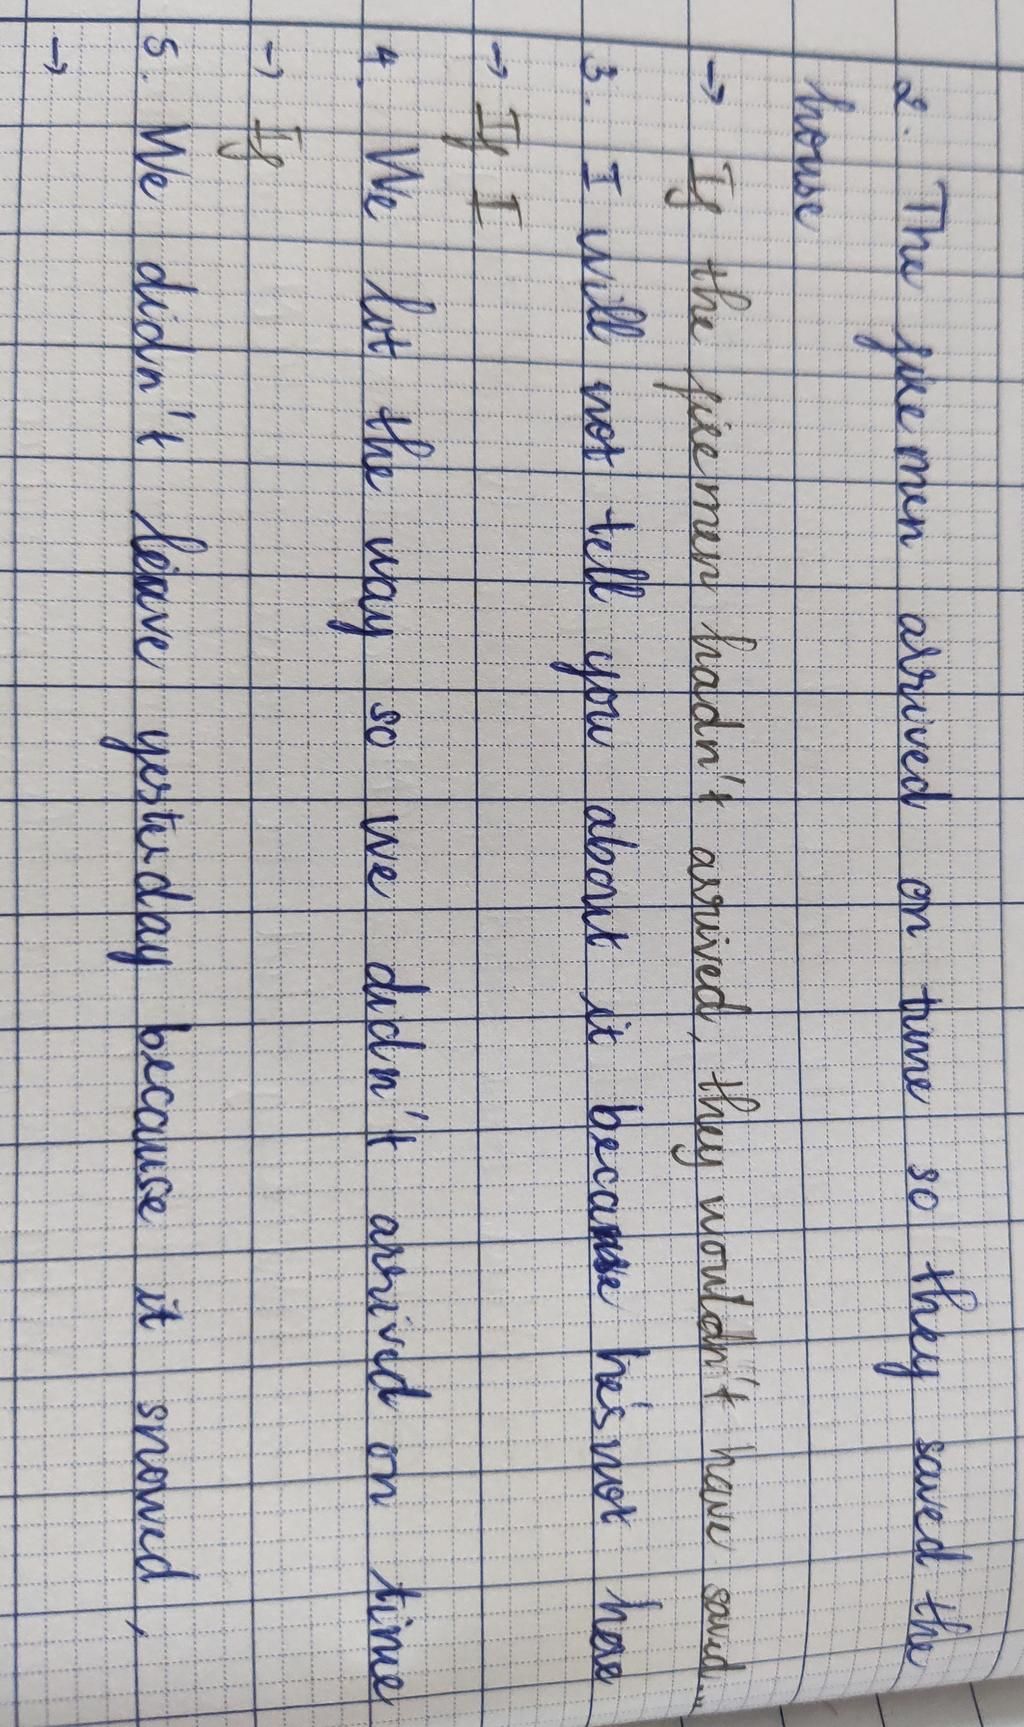 2. The firemen arrived on time so they saved the
house
→ If the firemen hadn't arrived, they wouldn't have saved...
3. I will not tell you about it because he's not here
→ If I
4. We lot the way so we didn't arrived on time
→ If
5. We didn't leave yesterday because it snowed,
→